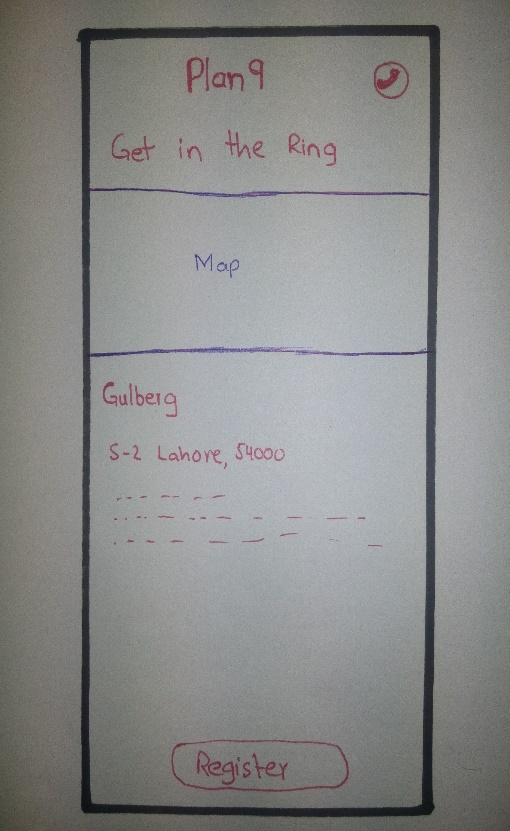 Plan9
Get in the Ring
Map
Gulberg
S-2 Lahore, 54000
Register